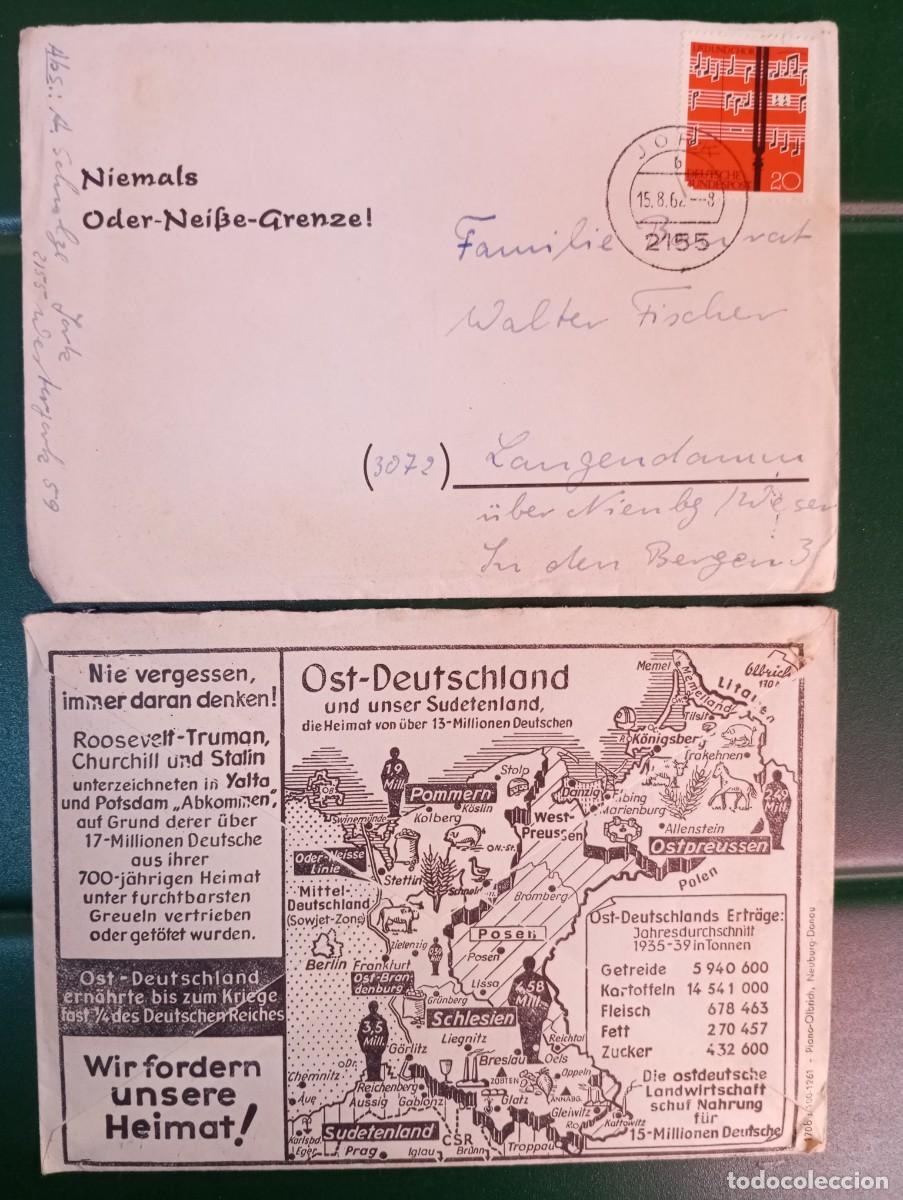 LIEDUNDCHOR
DEUTSCHE
BUNDESPOST 20
JORK
b
15.8.62.-8
2155
Niemals
Oder-Neiße-Grenze!
Familie
Walter Fischer
(3072) Langendamm
über Nienbg /Weser
In den Bergen 3
Abs.: A. Schmolze
Jork
2155 Westerjork 59
Nie vergessen,
immer daran denken!
Roosevelt-Truman,
Churchill und Stalin
unterzeichneten in Yalta
und Potsdam „Abkommen",
auf Grund derer über
17-Millionen Deutsche
aus ihrer
700-jährigen Heimat
unter furchtbarsten
Greueln vertrieben
oder getötet wurden.
Ost-Deutschland
ernährte bis zum Kriege
fast ¼ des Deutschen Reiches
Wir fordern
unsere
Heimat!
Ost-Deutschland
und unser Sudetenland,
die Heimat von über 13-Millionen Deutschen
Olbrich
Memel
Memelland
Litauen
Tilsit
Königsberg
Trakehnen
Stolp
Danzig
Elbing
Marienburg
1,9
Mill.
Pommern
Köslin
Kolberg
West-
Preussen
Allenstein
Ostpreussen
Swinemünde
Oder-Neisse
Linie
Stettin
Polen
Mittel-
Deutschland
(Sowjet-Zone)
Bromberg
Posen
Posen
Zielenzig
Berlin
Frankfurt
Ost-Bran-
denburg
Lissa
Grünberg
4,58
Mill.
Schlesien
Liegnitz
3,5
Mill.
Görlitz
Breslau
Oels
Reichtal
ZOBTEN
Oppeln
Chemnitz
Aue
Reichenberg
Aussig
Gablonz
Glatz
ANNABG.
Gleiwitz
Kattowitz
Sudetenland
ČSR
Karlsbd.
Eger
Prag
Iglau
Brünn
Troppau
Ost-Deutschlands Erträge:
Jahresdurchschnitt
1935-39 in Tonnen
Getreide 5 940 600
Kartoffeln 14 541 000
Fleisch 678 463
Fett 270 457
Zucker 432 600
Die ostdeutsche
Landwirtschaft
schuf Nahrung
für
15-Millionen Deutsche
Piano-Olbrich, Neuburg-Donau
todocoleccion